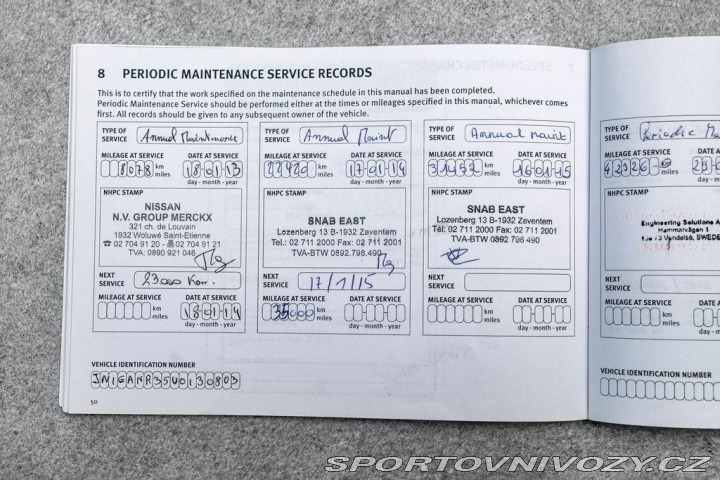 8 PERIODIC MAINTENANCE SERVICE RECORDS
This is to certify that the work specified on the maintenance schedule in this manual has been completed.
Periodic Maintenance Service should be performed either at the times or mileages specified in this manual, whichever comes
first. All records should be given to any subsequent owner of the vehicle.
TYPE OF SERVICE Annual Maintenance
MILEAGE AT SERVICE DATE AT SERVICE
8078 km miles 18-01-13
day - month - year
NHPC STAMP
NISSAN
N.V. GROUP MERCKX
321 ch. de Louvain
1932 Woluwé Saint-Etienne
☎ 02 704 91 20 - 02 704 94 21
TVA: 0890 921 046
NEXT SERVICE 23000 Km.
MILEAGE AT SERVICE DATE AT SERVICE
km miles 18-01-14
day - month - year
TYPE OF SERVICE Annual Maint
MILEAGE AT SERVICE DATE AT SERVICE
22420 km miles 17-01-14
day - month - year
NHPC STAMP
SNAB EAST
Lozenberg 13 B-1932 Zaventem
Tél.: 02 711 2000 Fax: 02 711 2001
TVA-BTW 0892.798.490
NEXT SERVICE 17/1/15
MILEAGE AT SERVICE DATE AT SERVICE
35000 km miles
day - month - year
TYPE OF SERVICE Annual maint
MILEAGE AT SERVICE DATE AT SERVICE
31432 km miles 16-01-15
day - month - year
NHPC STAMP
SNAB EAST
Lozenberg 13 B-1932 Zaventem
Tél.: 02 711 2000 Fax: 02 711 2001
TVA-BTW 0892.798.490
NEXT SERVICE
MILEAGE AT SERVICE DATE AT SERVICE
km miles
day - month - year
VEHICLE IDENTIFICATION NUMBER
JN1GANR35U0130803
50
TYPE OF SERVICE Periodic
MILEAGE AT SERVICE DATE
km miles
NHPC STAMP
Engineering Solutions
Hammarvägen 1
Vendelsö, SWEDE
NEXT SERVICE
MILEAGE AT SERVICE DATE
km miles
VEHICLE IDENTIFICATION NUMBER
SPORTOVNIVOZY.CZ